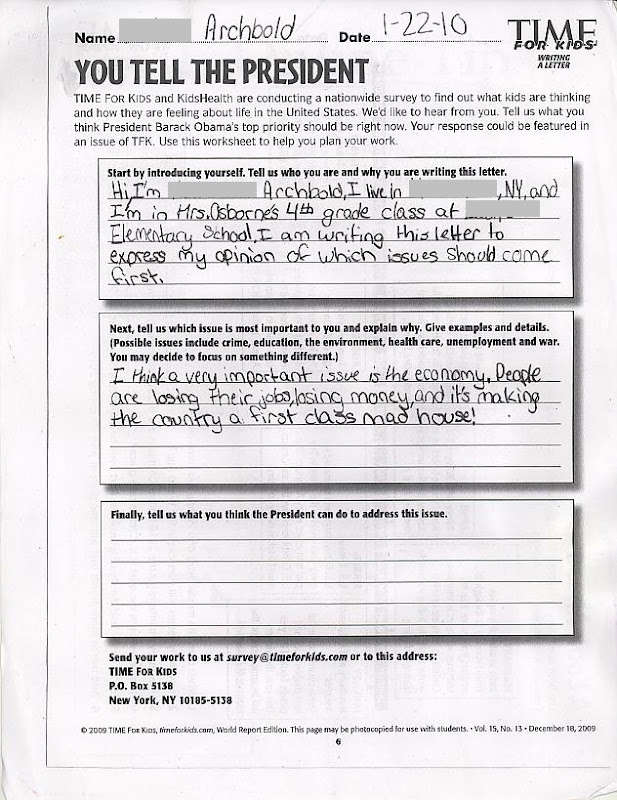 Name Archbold Date 1-22-10
TIME
FOR KIDS
WRITING
A LETTER
YOU TELL THE PRESIDENT
TIME FOR KIDS and KidsHealth are conducting a nationwide survey to find out what kids are thinking
and how they are feeling about life in the United States. We'd like to hear from you. Tell us what you
think President Barack Obama's top priority should be right now. Your response could be featured in
an issue of TFK. Use this worksheet to help you plan your work.
Start by introducing yourself. Tell us who you are and why you are writing this letter.
Hi, I'm Archbold, I live in , NY, and
I'm in Mrs. Osborne's 4th grade class at
Elementary School, I am writing this letter to
express my opinion of which issues should come
first.
Next, tell us which issue is most important to you and explain why. Give examples and details.
(Possible issues include crime, education, the environment, health care, unemployment and war.
You may decide to focus on something different.)
I think a very important issue is the economy. People
are losing their jobs, losing money, and it's making
the country a first class mad house!
Finally, tell us what you think the President can do to address this issue.
Send your work to us at survey@timeforkids.com or to this address:
TIME FOR KIDS
P.O. Box 5138
New York, NY 10185-5138
© 2009 TIME FOR KIDS, timeforkids.com, World Report Edition. This page may be photocopied for use with students. • Vol. 15, No. 13 • December 18, 2009
6